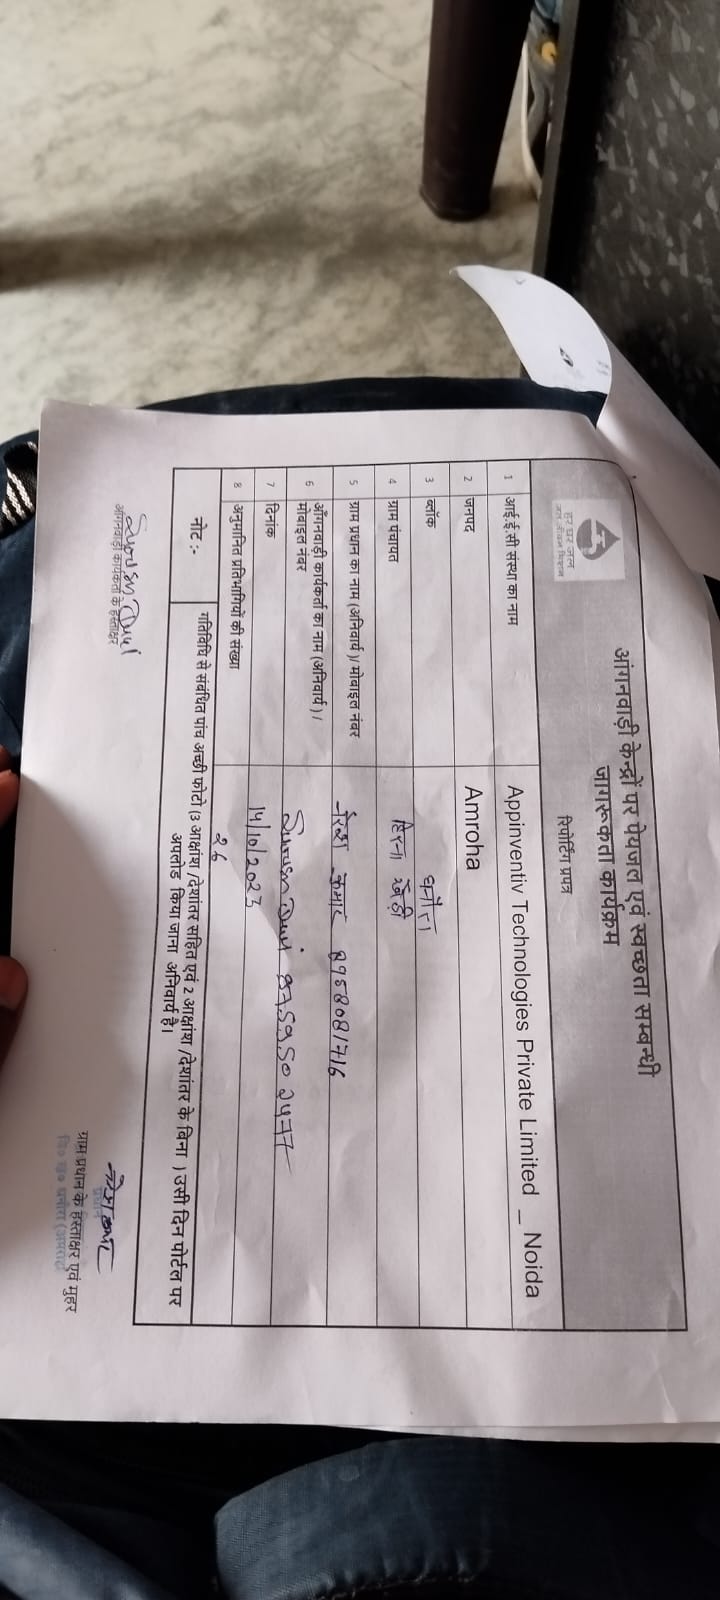 हर घर जल
जल जीवन मिशन
आंगनवाड़ी केन्द्रों पर पेयजल एवं स्वच्छता सम्बन्धी
जागरूकता कार्यक्रम
रिपोर्टिंग प्रपत्र
1 आई.ई.सी संस्था का नाम Appinventiv Technologies Private Limited _ Noida
2 जनपद Amroha
3 ब्लॉक धनौरा
4 ग्राम पंचायत खेड़ी
5 ग्राम प्रधान का नाम (अनिवार्य)/ मोबाइल नंबर नरेश कुमार 8958081716
6 आँगनवाड़ी कार्यकर्ता का नाम (अनिवार्य) /
मोबाइल नंबर Devi 8759502477
7 दिनांक 14/10/2023
8 अनुमानित प्रतिभागियों की संख्या 26
नोट :- गतिविधि से संबंधित पांच अच्छी फोटो (3 आक्षांश /देशांतर सहित एवं 2 आक्षांश /देशांतर के बिना ) उसी दिन पोर्टल पर
अपलोड किया जाना अनिवार्य है।
आंगनवाड़ी कार्यकर्ता के हस्ताक्षर
प्रधान
ग्राम प्रधान के हस्ताक्षर एवं मुहर